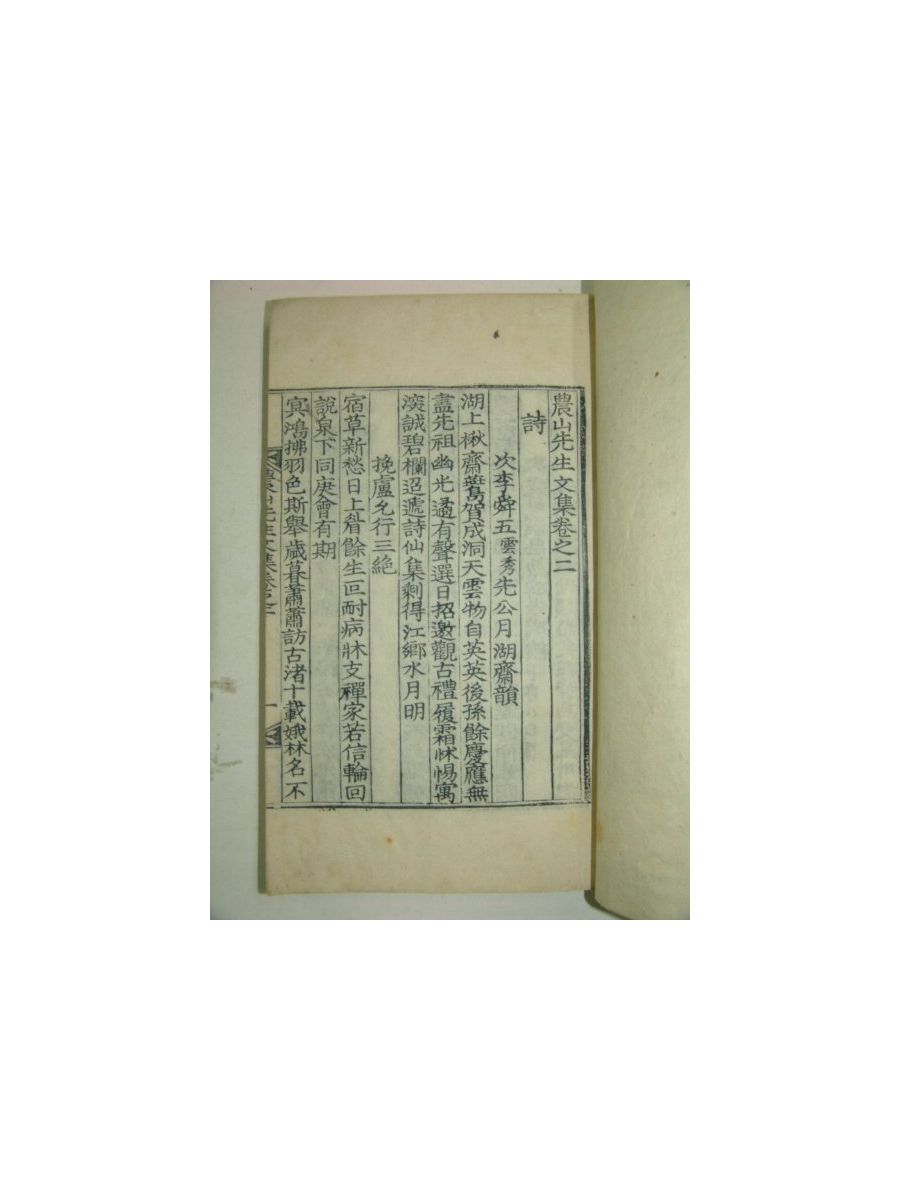 農山先生文集卷之二
詩
次李舜五雲秀先公月湖齋韻
湖上楸齋舊賀成洞天雲物自英英後孫餘慶應無
盡先祖幽光遹有聲選日招邀觀古禮履霜怵惕寓
深誠碧欄迢遞詩仙集剩得江鄉水月明
挽盧允行三絶
宿草新愁日上眉餘生叵耐病牀支禪家若信輪回
說泉下同庚會有期
冥鴻拂羽色斯舉歲暮蕭蕭訪古渚十載娥林名不
農山先生文集卷之二 一